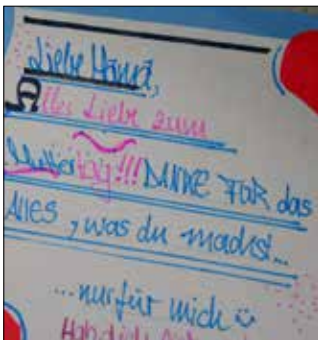 Liebe Mama,
Alles Liebe zum
Muttertag!!! DANKE FÜR das
Alles, was du machst...
...nur für mich ü
Hab dich